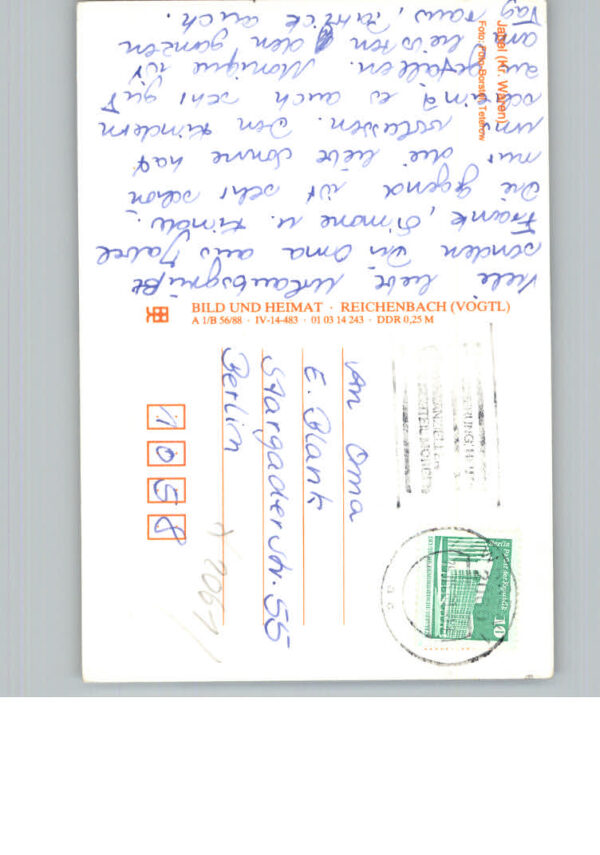 Jabel (Kr. Waren)
Foto: Foto-Borsten, Teterow
Viele liebe Urlaubsgrüße
senden Dir Oma aus Jabel
Frank, Simone u. Kinder.
Die Gegend ist sehr schön
nur die liebe Sonne hat
uns verlassen. Den Kindern
scheint es auch sehr gut
zu gefallen. Monique ist
am den ganzen
Tag raus, Patrick auch.
BILD UND HEIMAT · REICHENBACH (VOGTL)
A 1/B 56/88 · IV-14-483 · 01 03 14 243 · DDR 0,25 M
An Oma
E. Blank
Stargaderstr. 55
Berlin
1058
2061
10